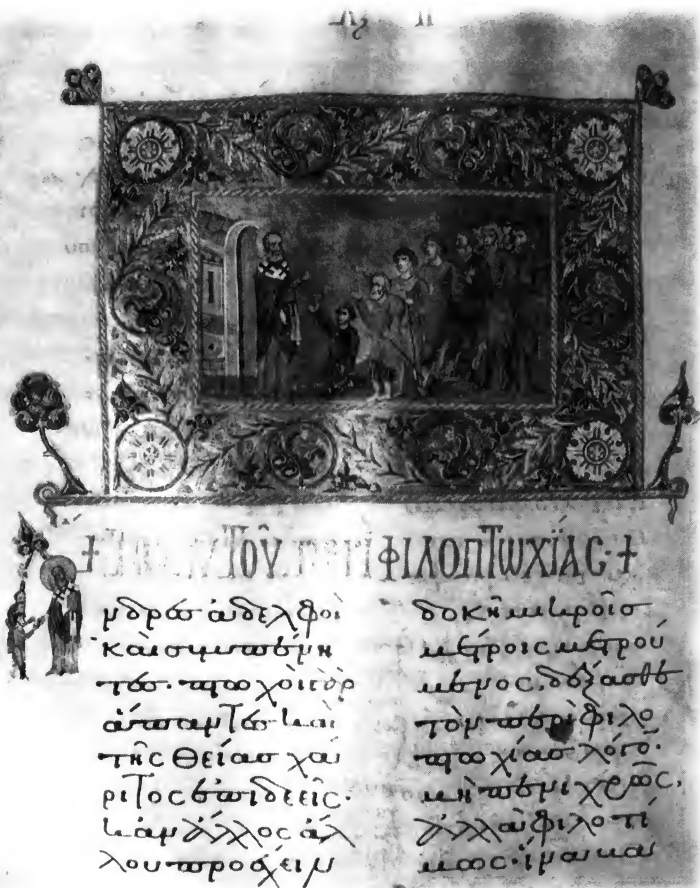 + ΤΟΥ ΑΥΤΟῦ ΠΕΡῚ ΦΙΛΟΠΤΩΧΪΑС· +
νδρεσ ἀδελφοὶ
καὶ συμπένη
τεσ· πτωχοὶ γὰρ
ἅπαντεσ καὶ
τῆς θείασ χά
ριτος ἐπιδεεῖς·
κἂν ἄλλος ἄλ
λου προέχειν
δοκῆ μικροῖσ
μέτροις μετρού
μενος. δέξασθε
τὸν περὶ φιλο
πτωχίασ λόγον·
μὴ πενιχρῶς,
ἀλλὰ φιλοτί
μως· ἵνα καὶ